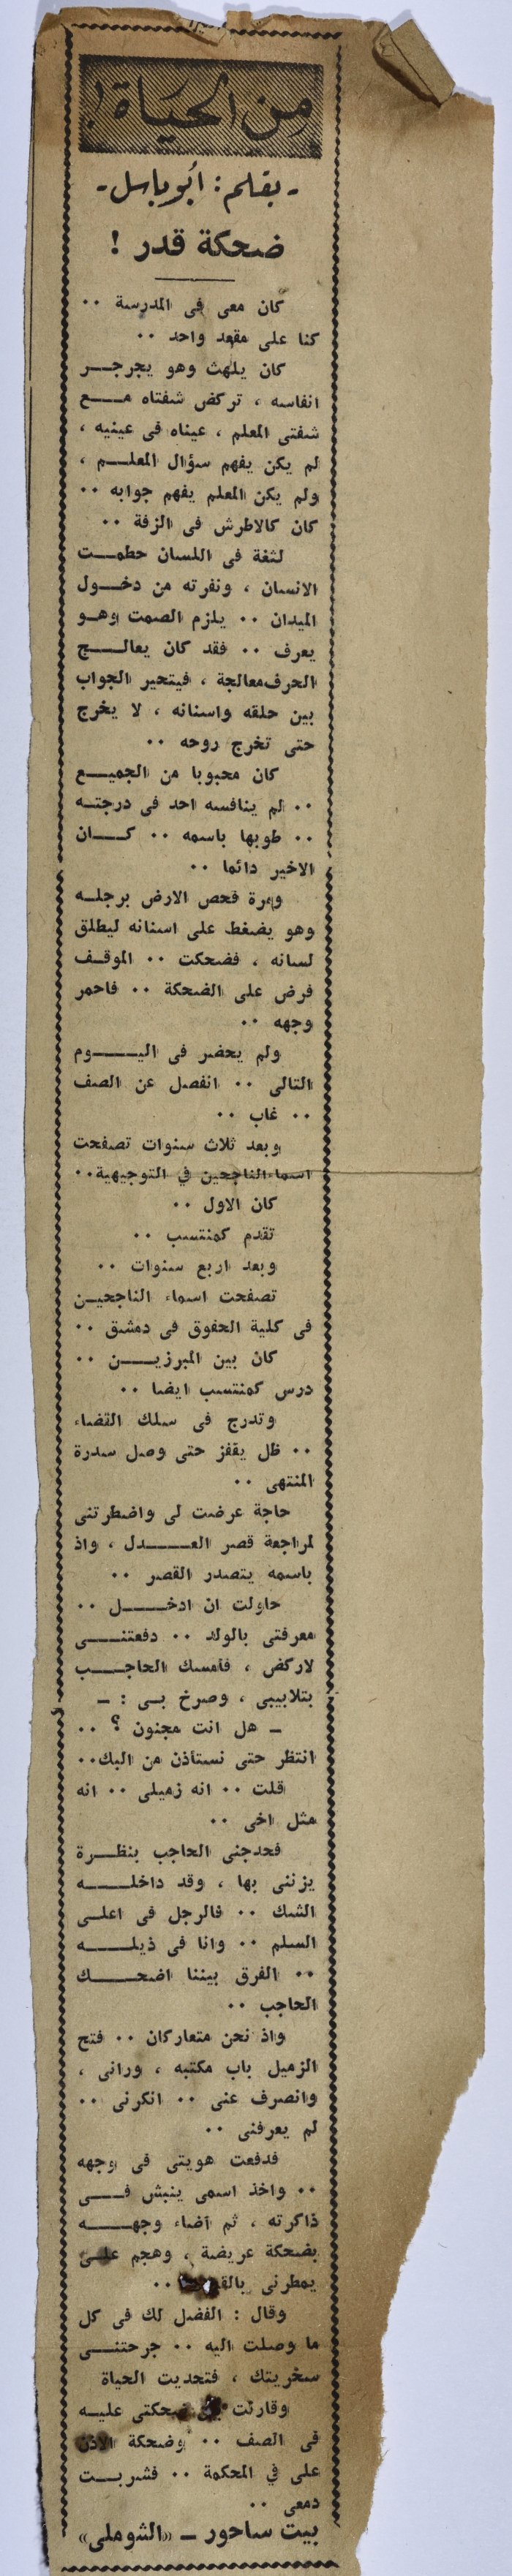 من الحياة !
- بقلم : أبو باسل -
ضحكة قدر !
كان معى فى المدرسة ..
كنا على مقعد واحد ..
كان يلهث وهو يجرجر
انفاسه ، تركض شفتاه مع
شفتى المعلم ، عيناه فى عينيه ،
لم يكن يفهم سؤال المعلم ،
ولم يكن المعلم يفهم جوابه ..
كان كالاطرش فى الزفة ..
لثغة فى اللسان حطمت
الانسان ، ونفرته من دخول
الميدان .. يلزم الصمت وهو
يعرف .. فقد كان يعالج
الحرف معالجة ، فيتحير الجواب
بين حلقه واسنانه ، لا يخرج
حتى تخرج روحه ..
كان محبوبا من الجميع
.. لم ينافسه احد فى درجته
.. طوبها باسمه .. كان
الاخير دائما ..
ومرة فحص الارض برجله
وهو يضغط على اسنانه ليطلق
لسانه ، فضحكت .. الموقف
فرض على الضحكة .. فاحمر
وجهه ..
ولم يحضر فى اليوم
التالى .. انفصل عن الصف
.. غاب ..
وبعد ثلاث سنوات تصفحت
اسماء الناجحين في التوجيهية ..
كان الاول ..
تقدم كمنتسب ..
وبعد اربع سنوات ..
تصفحت اسماء الناجحين
فى كلية الحقوق فى دمشق ..
كان بين المبرزين ..
درس كمنتسب ايضا ..
وتدرج فى سلك القضاء
.. ظل يقفز حتى وصل سدرة
المنتهى ..
حاجة عرضت لى واضطرتنى
لمراجعة قصر العدل ، واذ
باسمه يتصدر القصر ..
حاولت ان ادخل ..
معرفتى بالولد .. دفعتنى
لاركض ، فامسك الحاجب
بتلابيبى ، وصرخ بى : -
- هل انت مجنون ؟ ..
انتظر حتى نستأذن من البك ..
قلت .. انه زميلى .. انه
مثل اخى ..
فحدجنى الحاجب بنظرة
يزننى بها ، وقد داخله
الشك .. فالرجل فى اعلى
السلم .. وانا فى ذيله
.. الفرق بيننا اضحك
الحاجب ..
واذ نحن متعاركان .. فتح
الزميل باب مكتبه ، ورانى ،
وانصرف عنى .. انكرنى ..
لم يعرفنى ..
فدفعت هويتى فى وجهه
.. واخذ اسمى ينبش فى
ذاكرته ، ثم أضاء وجهه
بضحكة عريضة ، وهجم على
يمطرنى ..
وقال : الفضل لك فى كل
ما وصلت اليه .. جرحتنى
سخريتك ، فتحديت الحياة
وقارنت ضحكتى عليه
فى الصف .. وضحكة الاذن
على في المحكمة .. فشربت
دمعى ..
بيت ساحور - «الشوملى»